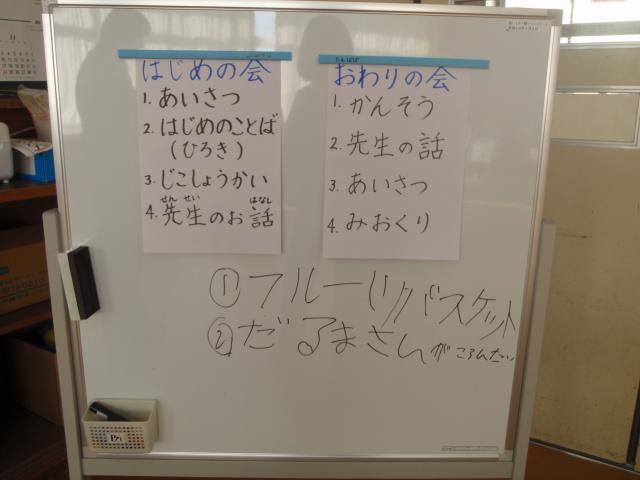 はじめの会
1. あいさつ
2. はじめのことば
(ひろき)
3. じこしょうかい
せんせい はなし
4. 先生のお話
おわりの会
1. かんそう
2. 先生の話
3. あいさつ
4. みおくり
① フルーツバスケット
② だるまさんがころんだ
11